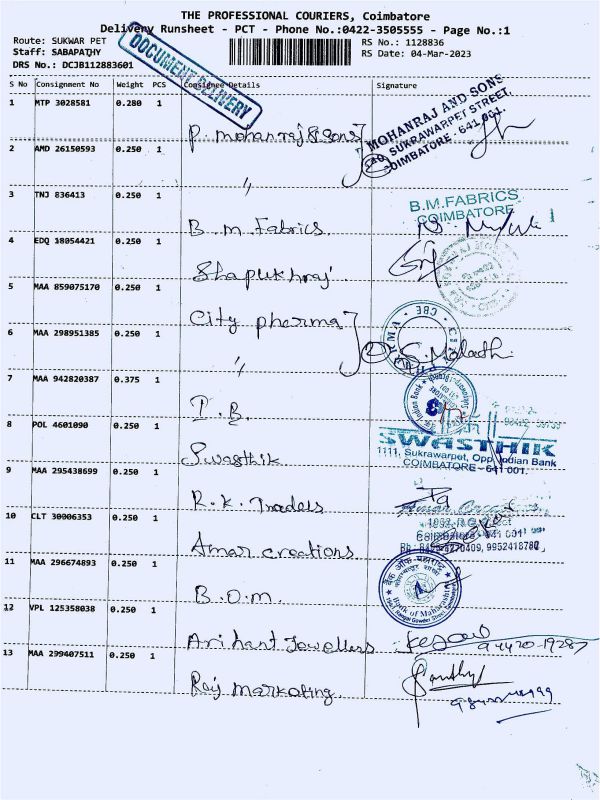 THE PROFESSIONAL COURIERS, Coimbatore
Delivery Runsheet - PCT - Phone No.:0422-3505555 - Page No.:1
Route: SUKWAR PET
RS No.: 1128836
Staff: SABAPATHY
RS Date: 04-Mar-2023
DRS No.: DCJB112883601
DOCUMENT DELIVERY
S No Consignment No Weight PCS Consignee Details Signature
1 MTP 3028581 0.280 1 P. Mohanraj & Sons
MOHANRAJ AND SONS
SUKRAWARPET STREET,
COIMBATORE - 641 001.
2 AMD 26150593 0.250 1 〃
3 TNJ 836413 0.250 1 B. M. Fabrics
B.M.FABRICS
COIMBATORE
4 EDQ 18054421 0.250 1 Shapukhraj
5 MAA 859075170 0.250 1 City pharma
6 MAA 298951385 0.250 1 〃
7 MAA 942820387 0.375 1 I.B.
Indian Bank
8 POL 4601090 0.250 1 Swasthik
SWASTHIK
1111, Sukrawarpet, Opp. Indian Bank
COIMBATORE - 641 001.
9 MAA 295438699 0.250 1 R. K. Traders
10 CLT 30006353 0.250 1 Amar creations
Coimbatore - 641 001
11 MAA 296674893 0.250 1 B.O.M.
बैंक ऑफ महाराष्ट्र
Bank of Maharashtra
12 VPL 125358038 0.250 1 Arihant Jewellers
94420-19287
13 MAA 299407511 0.250 1 Raj Marketing.